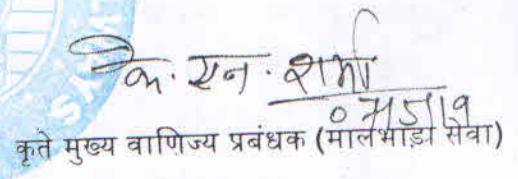 के. एन. शर्मा
कृते मुख्य वाणिज्य प्रबंधक (मालभाड़ा सेवा)